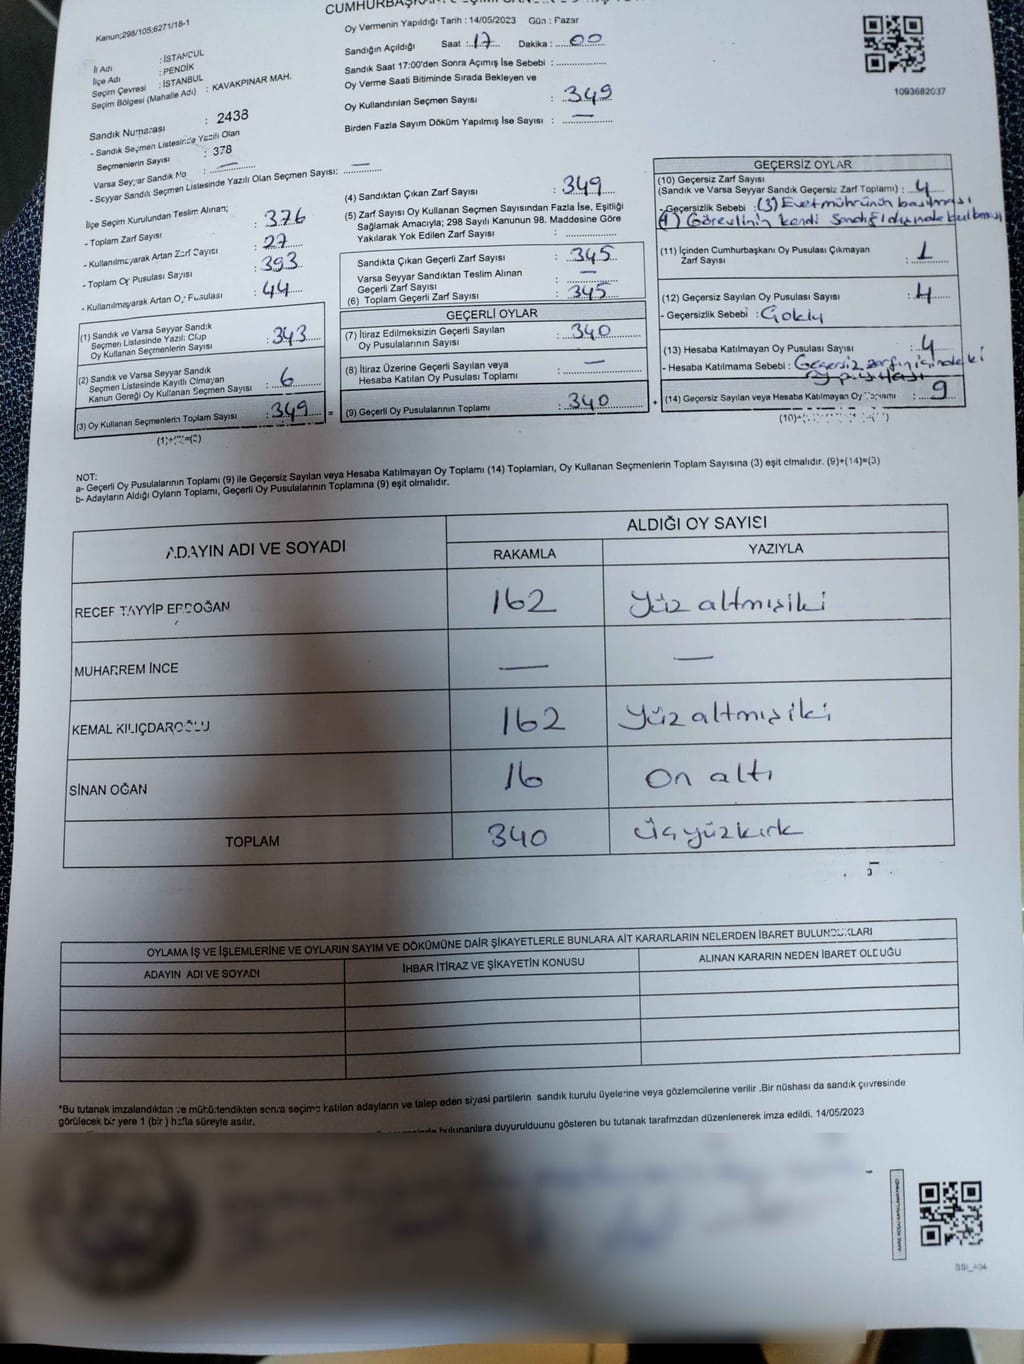 Kanun;298/105;6271/18-1
İl Adı : İSTANBUL
İlçe Adı : PENDİK
Seçim Çevresi : İSTANBUL
Seçim Bölgesi (Mahalle Adı) : KAVAKPINAR MAH.
Sandık Numarası : 2438
- Sandık Seçmen Listesinde Yazılı Olan
Seçmenlerin Sayısı : 378
Varsa Seyyar Sandık No : —
- Seyyar Sandık Seçmen Listesinde Yazılı Olan Seçmen Sayısı: —
İlçe Seçim Kurulundan Teslim Alınan;
- Toplam Zarf Sayısı : 376
- Kullanılmayarak Artan Zarf Sayısı : 27
- Toplam Oy Pusulası Sayısı : 393
- Kullanılmayarak Artan Oy Pusulası : 44
(1) Sandık ve Varsa Seyyar Sandık
Seçmen Listesinde Yazılı Olup
Oy Kullanan Seçmenlerin Sayısı : 343
(2) Sandık ve Varsa Seyyar Sandık
Seçmen Listesinde Kayıtlı Olmayan
Kanun Gereği Oy Kullanan Seçmen Sayısı : 6
(3) Oy Kullanan Seçmenlerin Toplam Sayısı : 349 =
Oy Vermenin Yapıldığı Tarih : 14/05/2023 Gün : Pazar
Sandığın Açıldığı Saat : 17 Dakika : 00
Sandık Saat 17:00'den Sonra Açımış İse Sebebi :
Oy Verme Saati Bitiminde Sırada Bekleyen ve
Oy Kullandırılan Seçmen Sayısı : 349
Birden Fazla Sayım Döküm Yapılmış İse Sayısı : —
(4) Sandıktan Çıkan Zarf Sayısı : 349
(5) Zarf Sayısı Oy Kullanan Seçmen Sayısından Fazla İse, Eşitliği
Sağlamak Amacıyla; 298 Sayılı Kanunun 98. Maddesine Göre
Yakılarak Yok Edilen Zarf Sayısı :
Sandıkta Çıkan Geçerli Zarf Sayısı : 345
Varsa Seyyar Sandıktan Teslim Alınan
Geçerli Zarf Sayısı : —
(6) Toplam Geçerli Zarf Sayısı : 345
GEÇERLİ OYLAR
(7) İtiraz Edilmeksizin Geçerli Sayılan
Oy Pusulalarının Sayısı : 340
(8) İtiraz Üzerine Geçerli Sayılan veya
Hesaba Katılan Oy Pusulası Toplamı : —
(9) Geçerli Oy Pusulalarının Toplamı : 340 +
1093682037
GEÇERSİZ OYLAR
(10) Geçersiz Zarf Sayısı
(Sandık ve Varsa Seyyar Sandık Geçersiz Zarf Toplamı) : 4
-Geçersizlik Sebebi : (3) Evet mührünün basılması
(1) Görevlinin kendi sandığı dışında bulması
(11) İçinden Cumhurbaşkanı Oy Pusulası Çıkmayan
Zarf Sayısı : 1
(12) Geçersiz Sayılan Oy Pusulası Sayısı : 4
- Geçersizlik Sebebi : Çoklu
(13) Hesaba Katılmayan Oy Pusulası Sayısı : 4
- Hesaba Katılmama Sebebi : Geçersiz zarfın içindeki
oy pusulası
(14) Geçersiz Sayılan veya Hesaba Katılmayan Oy Toplamı : 9
NOT:
a- Geçerli Oy Pusulalarının Toplamı (9) ile Geçersiz Sayılan veya Hesaba Katılmayan Oy Toplamı (14) Toplamları, Oy Kullanan Seçmenlerin Toplam Sayısına (3) eşit olmalıdır. (9)+(14)=(3)
b- Adayların Aldığı Oyların Toplamı, Geçerli Oy Pusulalarının Toplamına (9) eşit olmalıdır.
ADAYIN ADI VE SOYADI
ALDIĞI OY SAYISI
RAKAMLA YAZIYLA
RECEP TAYYİP ERDOĞAN 162 Yüz altmışiki
MUHARREM İNCE — —
KEMAL KILIÇDAROĞLU 162 Yüz altmışiki
SİNAN OĞAN 16 On altı
TOPLAM 340 Üçyüzkırk
3
OYLAMA İŞ VE İŞLEMLERİNE VE OYLARIN SAYIM VE DÖKÜMÜNE DAİR ŞİKAYETLERLE BUNLARA AİT KARARLARIN NELERDEN İBARET BULUNDUKLARI
ADAYIN ADI VE SOYADI İHBAR İTİRAZ VE ŞİKAYETİN KONUSU ALINAN KARARIN NEDEN İBARET OLDUĞU
*Bu tutanak imzalandıktan ve mühürlendikten sonra seçime katılan adayların ve talep eden siyasi partilerin sandık kurulu üyelerine veya gözlemcilerine verilir .Bir nüshası da sandık çevresinde
görülecek bir yere 1 (bir ) hafta süreyle asılır.
bulunanlara duyurulduunu gösteren bu tutanak tarafmzdan düzenlenerek imza edildi. 14/05/2023
SSI_404